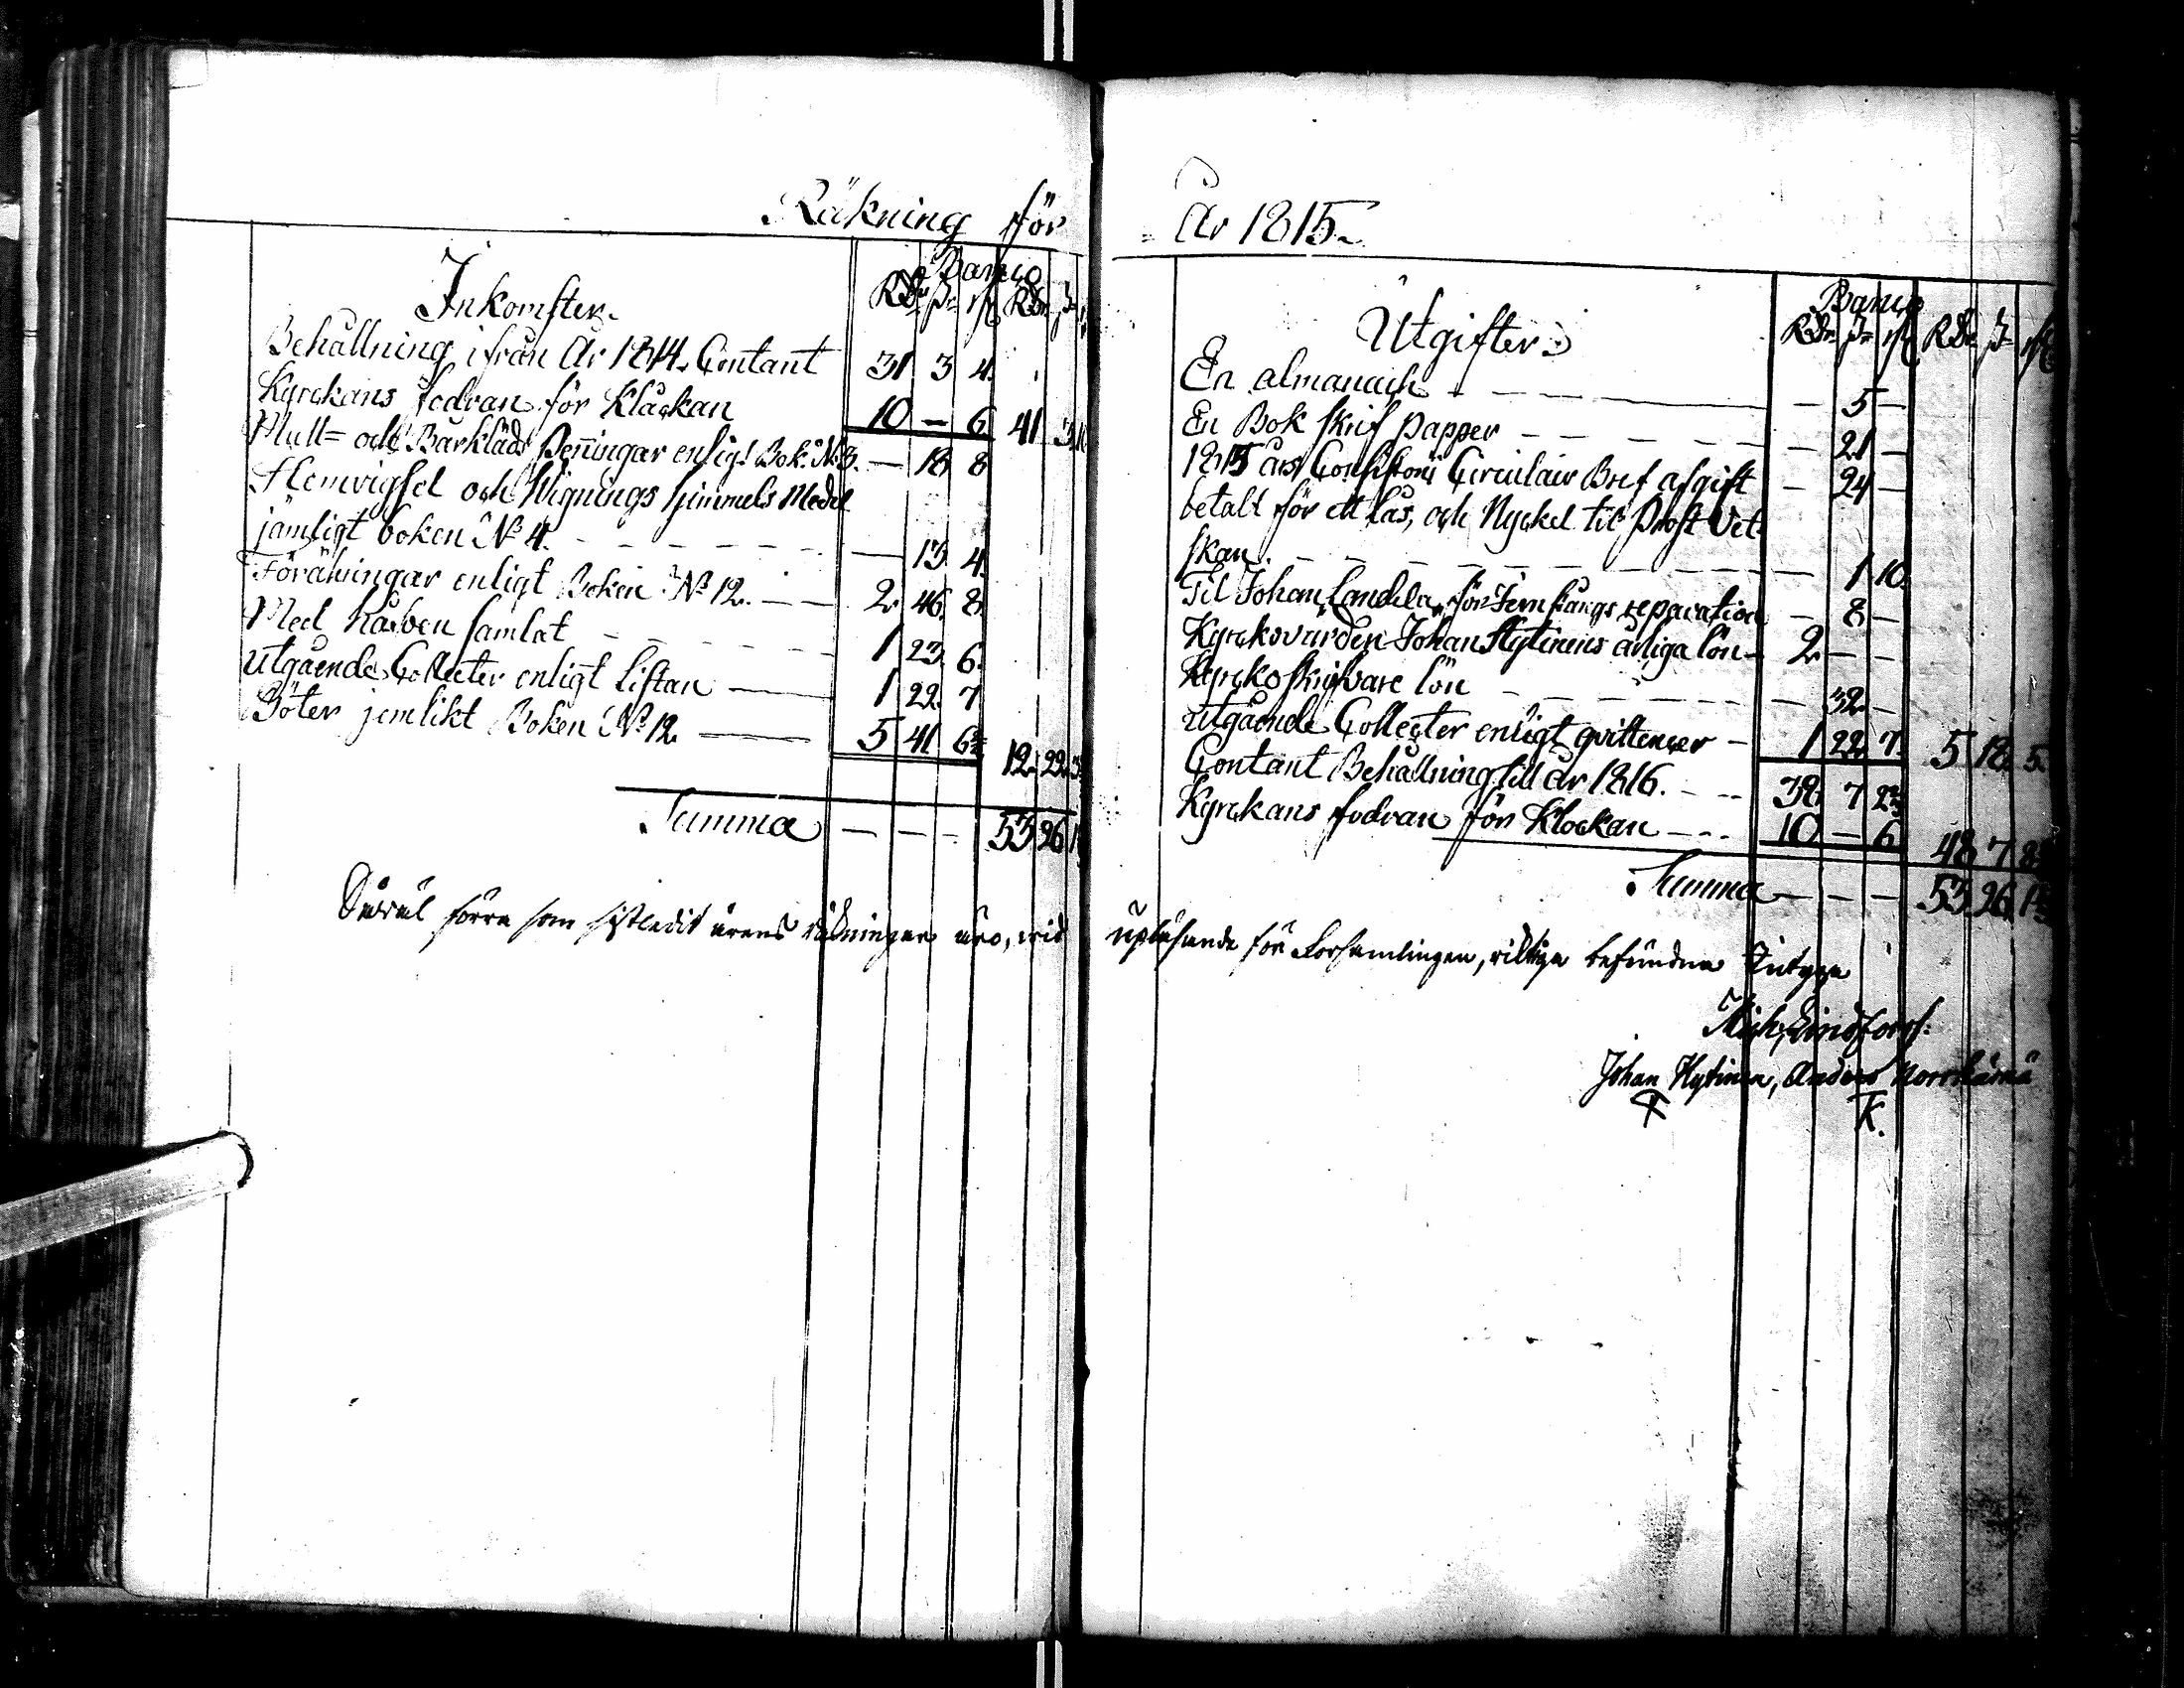 Räkning för
Inkomster.
Banco
Rdr ß rst Rdr ß
Behållning ifrån År 1814. Contant 31 3 4.
Kyrckans fodran för Kläckan 10 – 6 41 3 10
Mull= och Barkläds Peñingar enligt Bok. N:o 3. — 18 8
Hemvigsel och Wignings himmels Medel
jämligt boken N:o 4. — 13 4.
Föräringar enligt Boken N:o 12. — 2. 46. 8.
Med håfven samlat 1 23. 6.
Utgående Collecter enligt listan — 1 22. 7
Böter jemlikt Boken N:o 12. — 5 41 6 12. 22. 3
Summa — — — 53 26 1
Såväl förra som sistledit årens räkningar äro, vid
År 1815.
Utgifter
Banco
Rdr ß rst Rdr ß rst
En almanach — 5 —
En Bok skrif papper — 21 —
1815 års Consistorii Circulair Bref afgift — 24 —
betalt för ett lås, och Nyckel til Prost Vet
skan — 1 10.
Til Johan Landela för Jernstangs reparation — 8 —
Kyrckovärden Johan Hytinens årliga lön — 2. — —
Kyrcko skrifvare lön — 32. —
Utgående Collecter enligt qvittencer — 1 22. 7. 5 18. 5.
Contant Behållning till år 1816. — 38. 7 2
Kyrckans fodran för Klockan — 10 — 6 48 7 8
Summa — — — 53 26 1
upläsande för Församlingen, riktige befundne Intyga
Mich. Lindfors.
Johan Hytinen, Anders
K.